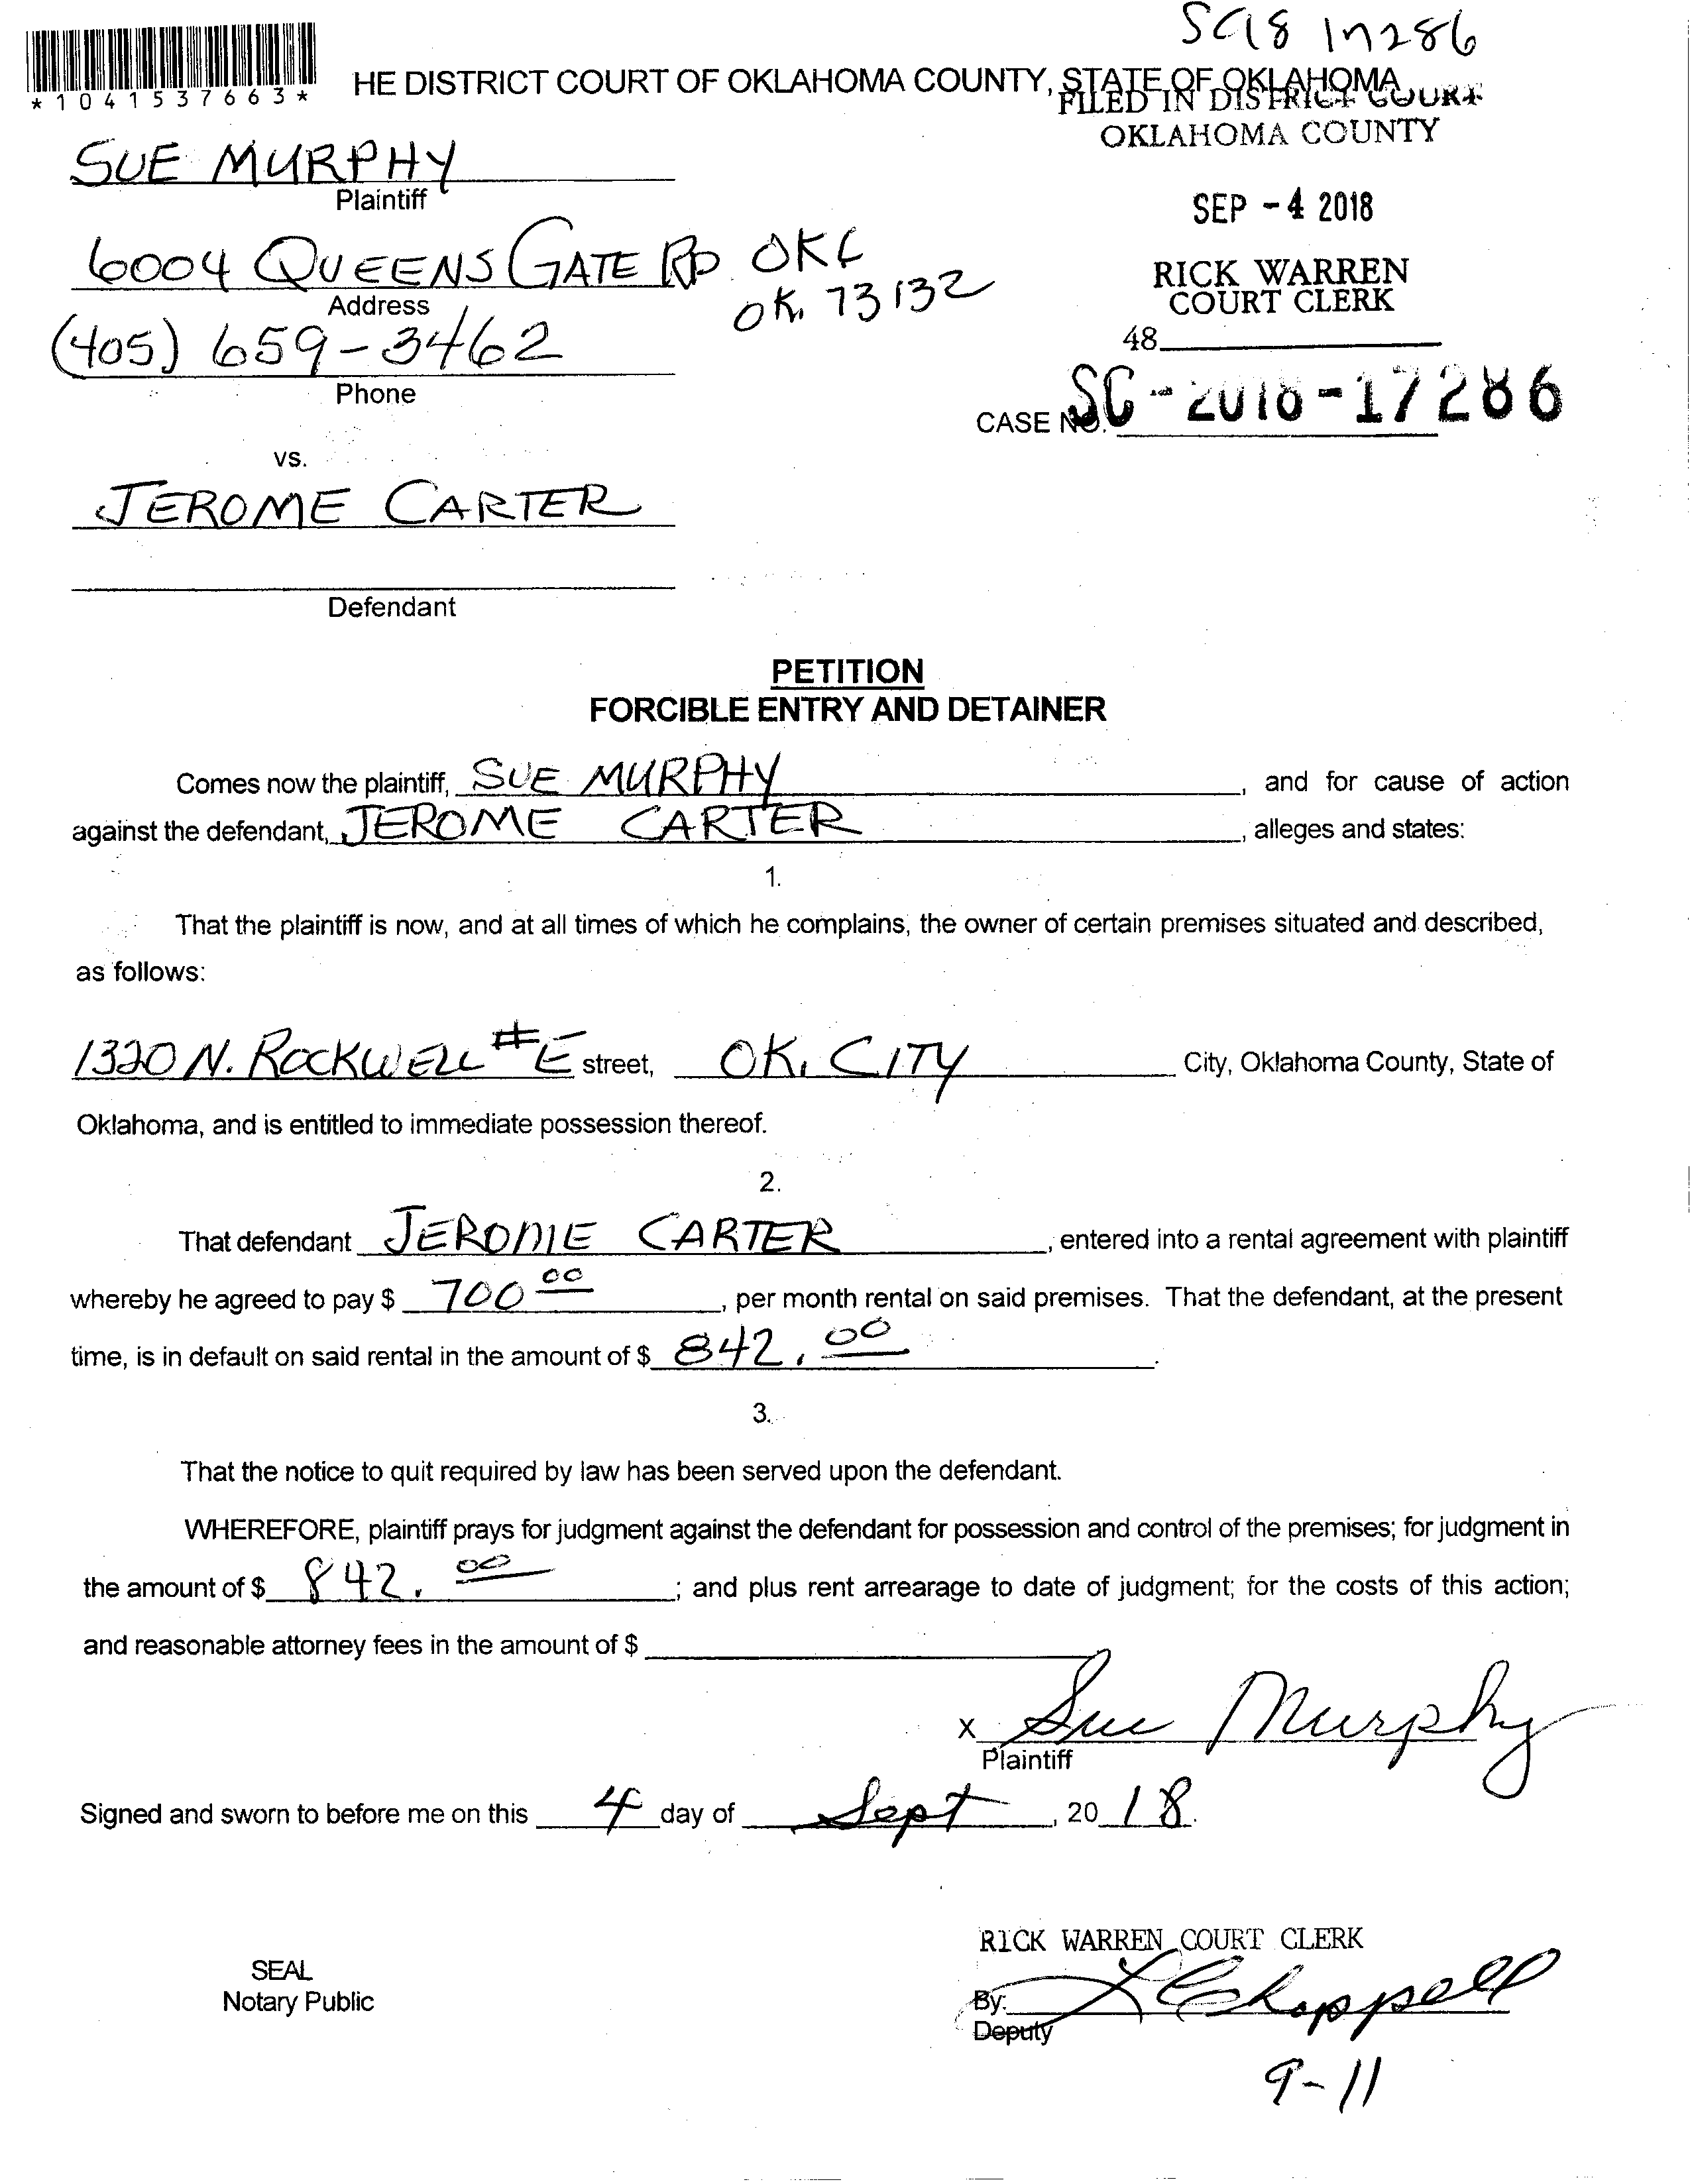 SC18 17286
*1041537663*
HE DISTRICT COURT OF OKLAHOMA COUNTY, STATE OF OKLAHOMA
FILED IN DISTRICT COURT
OKLAHOMA COUNTY
SUE MURPHY
Plaintiff
SEP -4 2018
6004 QUEENS GATE RD OKC
OK. 73132
Address
RICK WARREN
COURT CLERK
(405) 659-3462
48
Phone
CASE NO. SC-2018-17286
vs.
JEROME CARTER
Defendant
PETITION
FORCIBLE ENTRY AND DETAINER
Comes now the plaintiff, SUE MURPHY, and for cause of action
against the defendant, JEROME CARTER, alleges and states:
1.
That the plaintiff is now, and at all times of which he complains, the owner of certain premises situated and described,
as follows:
1320 N. ROCKWELL #E street, OK. CITY City, Oklahoma County, State of
Oklahoma, and is entitled to immediate possession thereof.
2.
That defendant JEROME CARTER, entered into a rental agreement with plaintiff
whereby he agreed to pay $ 700 00, per month rental on said premises. That the defendant, at the present
time, is in default on said rental in the amount of $ 842. 00.
3.
That the notice to quit required by law has been served upon the defendant.
WHEREFORE, plaintiff prays for judgment against the defendant for possession and control of the premises; for judgment in
the amount of $ 842. 00; and plus rent arrearage to date of judgment; for the costs of this action;
and reasonable attorney fees in the amount of $
X Sue Murphy
Plaintiff
Signed and sworn to before me on this 4 day of Sept, 20 18.
RICK WARREN COURT CLERK
SEAL
Notary Public
By: L Chappell
Deputy
9-11